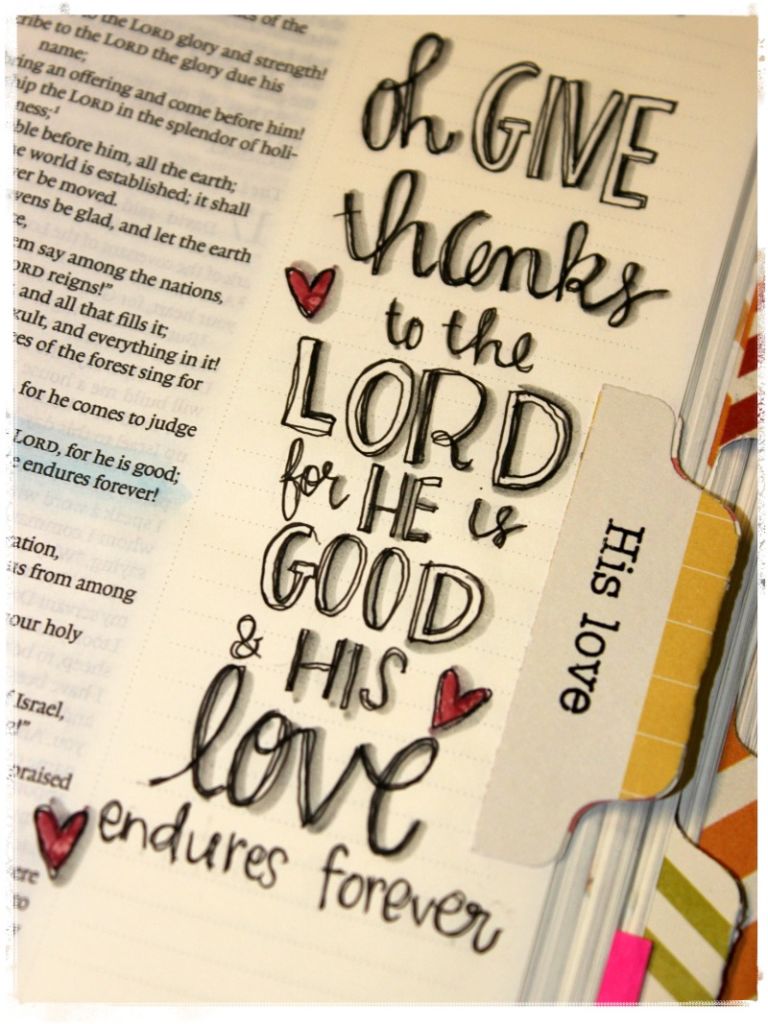 s of the
to the LORD glory and strength!
cribe to the LORD the glory due his
name;
ring an offering and come before him!
ship the LORD in the splendor of holi-
ness;¹
ble before him, all the earth;
e world is established; it shall
ver be moved.
vens be glad, and let the earth
ce,
em say among the nations,
ORD reigns!”
and all that fills it;
xult, and everything in it!
es of the forest sing for
for he comes to judge
LORD, for he is good;
e endures forever!
ration,
us from among
our holy
f Israel,
e!”
praised
ere
to
oh GIVE
thanks
to the
LORD
for HE is
GOOD
& HIS
love
endures forever
His love